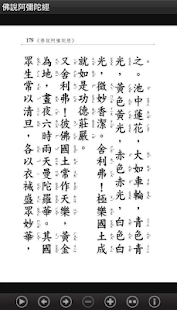 佛說阿彌陀經
《佛說阿彌陀經》
之。池中蓮花,大如車輪,青色青
光,黃色黃光,赤色赤光,白色白
光,微妙香潔。舍利弗!極樂國土成
就如是功德莊嚴。
又舍利弗!彼佛國土常作天樂,黃金
為地,晝夜六時雨天曼陀羅華。其國
眾生常以清旦,各以衣祴盛眾妙華,